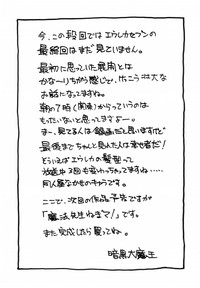 今、この段階ではエウレカセブンの
最終回はまだ見ていません。
最初に思っていた展開とは
かな〜りちがう感じで、けっこう壮大な
お話になってますね。
朝の7時(関東)からっていうのは
もったいないと思ってますよー。
ま、見てる人は録画だと思いますけど
最後までちゃんと見れた人は幸せ者だ!
どういえばエウレカの髪型って
放送中3回も変わっちゃてますね…。
同人屋なかせのキャラです。
ここで、次回の作品予告ですが
「魔法先生ねぎま!」です。
また完成したら買ってね。
暗黒大魔王